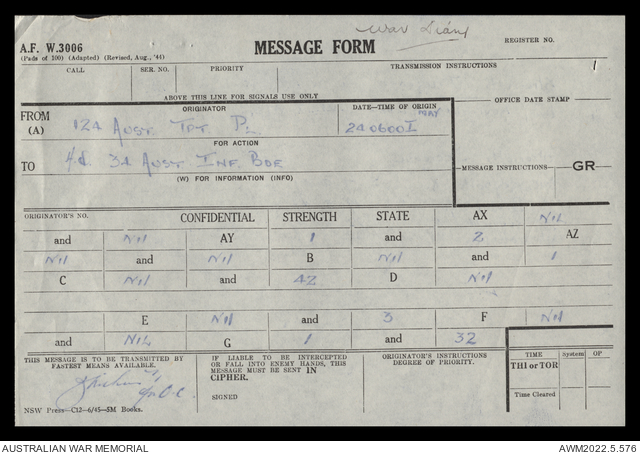 War Diary
A.F. W.3006
(Pads of 100) (Adapted) (Revised, Aug., '44)
MESSAGE FORM
REGISTER NO.
CALL SER. NO. PRIORITY TRANSMISSION INSTRUCTIONS 1
ABOVE THIS LINE FOR SIGNALS USE ONLY
OFFICE DATE STAMP
FROM (A) ORIGINATOR DATE—TIME OF ORIGIN
124 AUST TPT PL 240600I MAY
FOR ACTION
TO Hd. 34 AUST INF BDE
(W) FOR INFORMATION (INFO)
MESSAGE INSTRUCTIONS GR
ORIGINATOR'S NO. CONFIDENTIAL STRENGTH STATE AX NIL
and Nil AY 1 and 2 AZ
Nil and Nil B Nil and 1
C Nil and 42 D Nil
E Nil and 3 F Nil
and NIL G 1 and 32
THIS MESSAGE IS TO BE TRANSMITTED BY FASTEST MEANS AVAILABLE.
IF LIABLE TO BE INTERCEPTED OR FALL INTO ENEMY HANDS, THIS MESSAGE MUST BE SENT IN CIPHER.
SIGNED
ORIGINATOR'S INSTRUCTIONS DEGREE OF PRIORITY.
TIME System OP
THI or TOR
Time Cleared
NSW Press—C12—6/45—5M Books.
AUSTRALIAN WAR MEMORIAL AWM2022.5.576